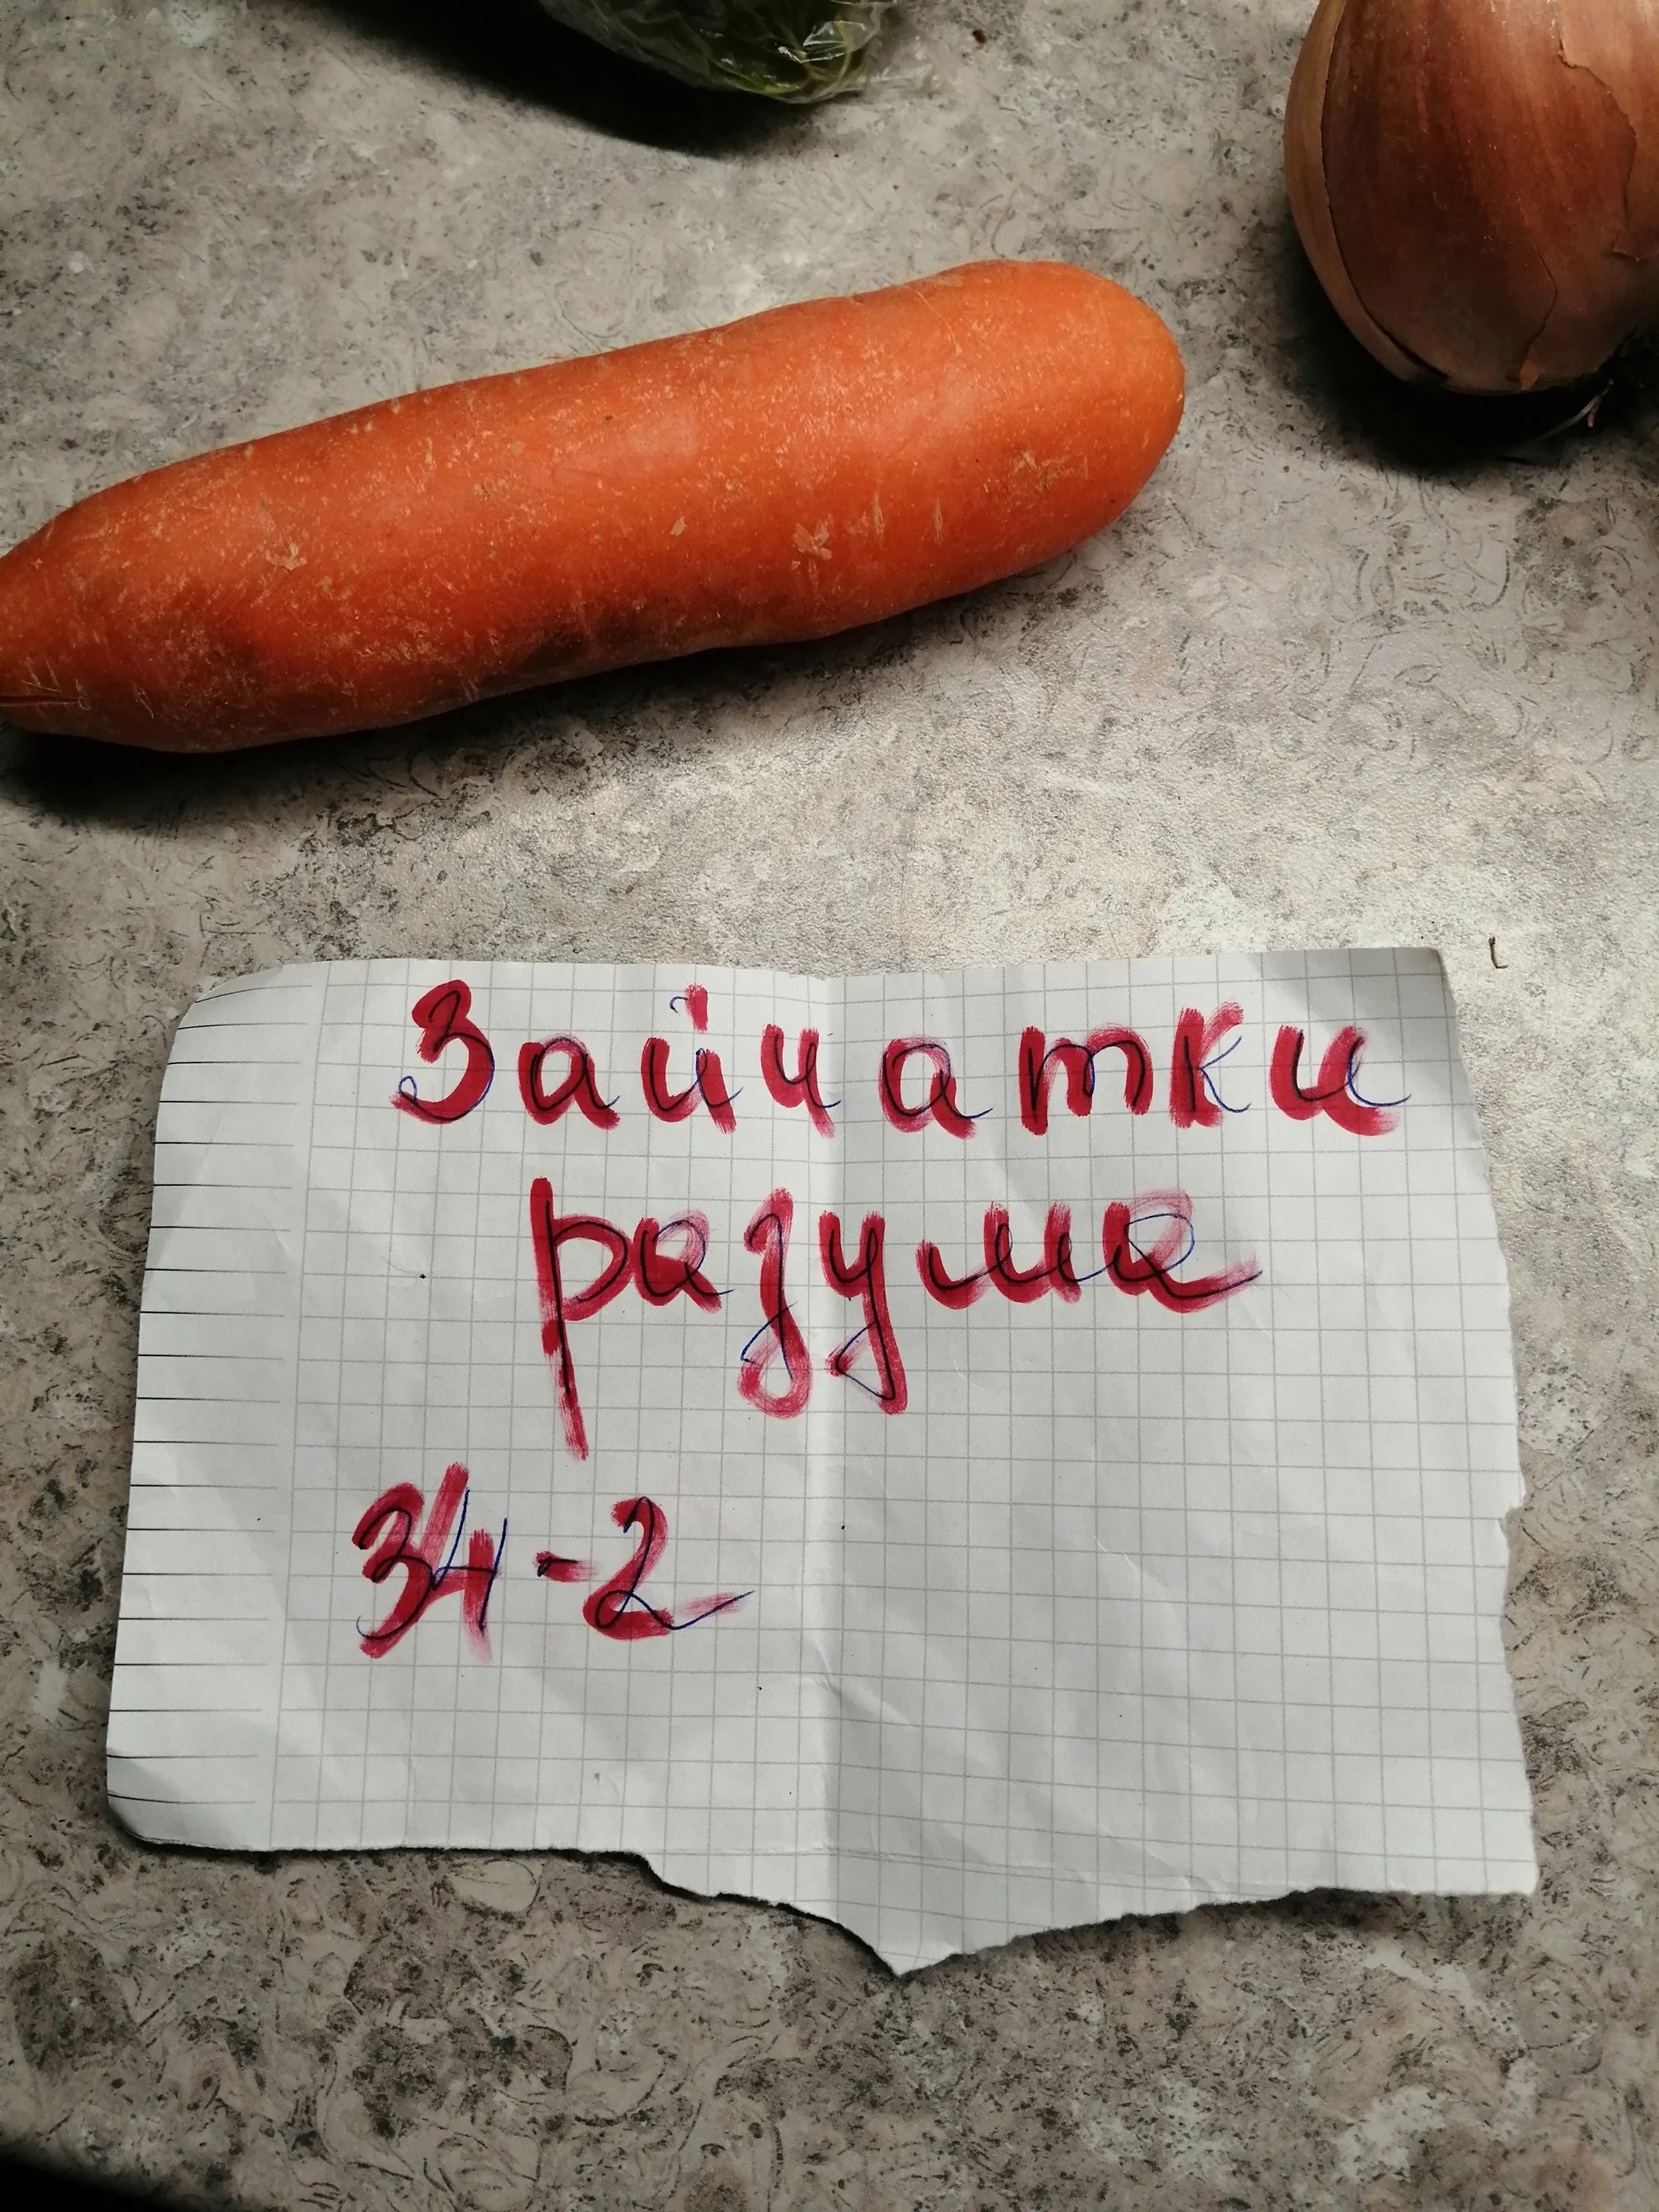 Зайчатки
разума
34-2